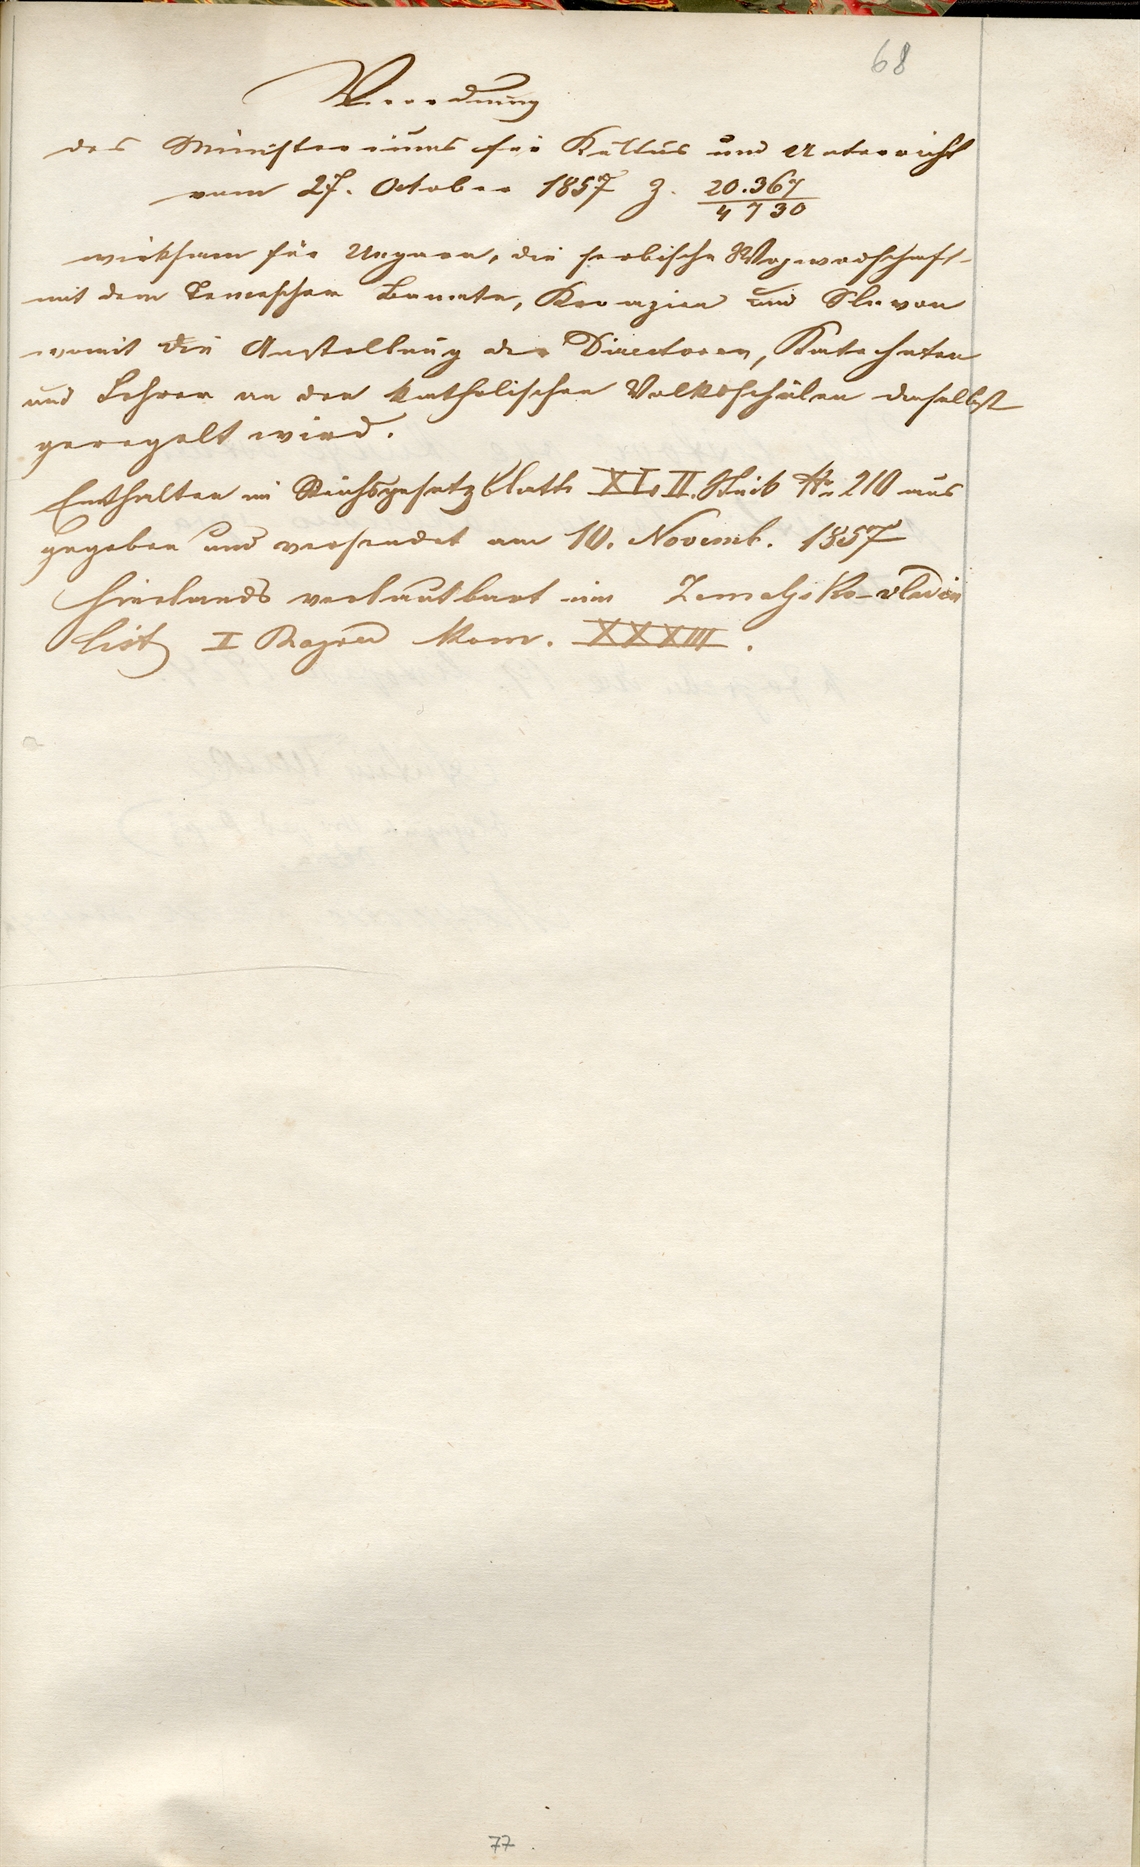 68
Verordnung
des Ministeriums für Kultus und Unterricht
vom 27. October 1857 Z. 20.367
4730
wirksam für Ungarn, die serbische Wojwodschaft
mit dem Temescher Banate, Kroazien und Slavon
womit die Anstellung der Directoren, Katecheten
und Lehrer an den katholischen Volksschulen daselbst
geregelt wird.
Enthalten im Reichsgesetzblatt XLII. Stück No 210 aus
gegeben und versendet am 10. Novemb. 1857
hierlands verlautbart im Zemaljsko-vladin
list I Razred Kom. XXXIII.
77